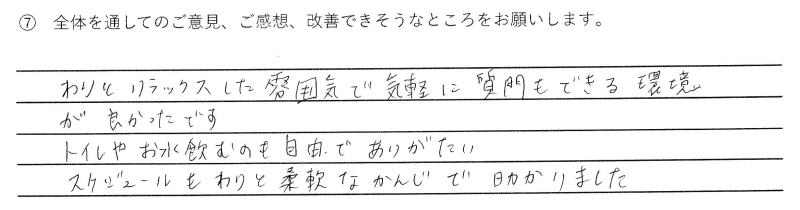 ⑦ 全体を通してのご意見、ご感想、改善できそうなところをお願いします。
わりとリラックスした雰囲気で気軽に質問もできる環境
が良かったです
トイレやお水飲むのも自由でありがたい
スケジュールもわりと柔軟なかんじで助かりました